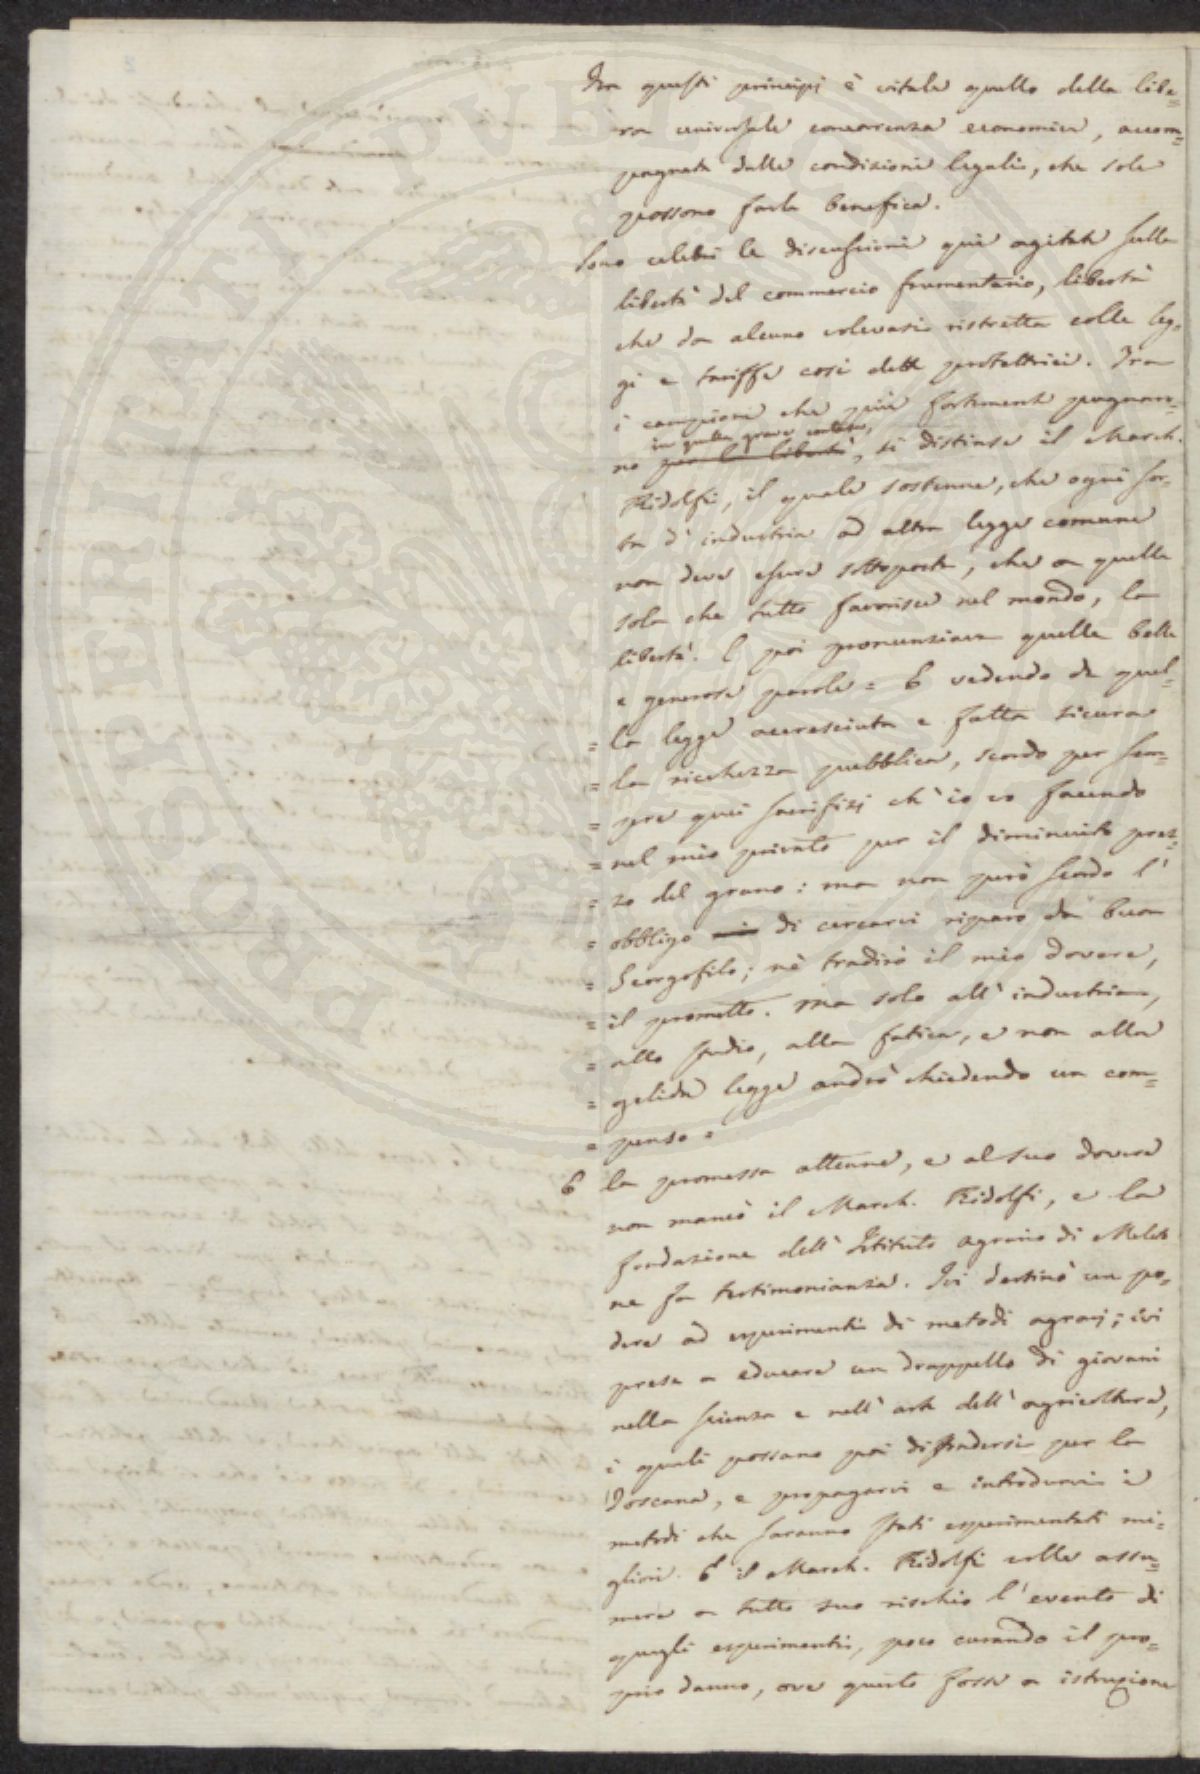 Tra questi principj è vitale quello della libe=
ra universale concorrenza economica, accom=
pagnata dalle condizioni legali, che sole
possono farla benefica.
Sono celebri le discussioni qui agitate sulla
libertà del commercio frumentario, libertà
che da alcuno volevasi ristretta colle leg=
gi e tariffe così dette protettrici. Tra
i campioni che più fortemente pugnaro=
in quella grave contesa,
no per la libertà, si distinse il March.
Ridolfi, il quale sostenne, che ogni sor=
ta d'industria ad altra legge comune
non deve essere sottoposta, che a quella
sola che tutto favorisce nel mondo, la
libertà. E poi pronunziava quelle belle
e generose parole = E vedendo da quel=
= la legge accresciuta e fatta sicura
= la ricchezza pubblica, scordo per sem=
= pre quei sacrifizj ch'io vo facendo
= nel mio privato per il diminuito prez=
= zo del grano: ma non però scordo l'
= obbligo di cercarvi riparo da buon
= Georgofilo; nè tradirò il mio dovere,
= il prometto. Ma solo all'industria,
= allo studio, alla fatica, e non alla
= gelida legge andrò chiedendo un com=
= penso =
E la promessa attenne, e al suo dovere
non mancò il March. Ridolfi, e la
fondazione dell'Istituto agrario di Meleto
ne fa testimonianza. Ivi destinò un po=
dere ad esperimenti di metodi agrarj; ivi
prese a educare un drappello di giovani
nella scienza e nell'arte dell'agricoltura,
i quali possano poi diffondersi per la
Toscana, e propagarvi e introdurvi i
metodi che saranno stati esperimentati mi=
gliori. E il March. Ridolfi volle assu=
mere a tutto suo rischio l'evento di
quegli esperimenti, poco curando il pro=
prio danno, ove questo fosse a istruzione